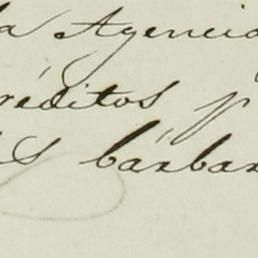 la Agencia
réditos p
s bárbar